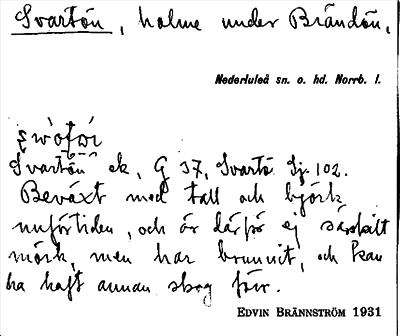 Svartön, holme under Brändön,
Nederluleå sn. o. hd. Norrb. l.
Svartön ek, G 37, Svartö Sj. 102.
Beväxt med tall och björk
nuförtiden, och är därför ej särskilt
mörk, men har brunnit, och kan
ha haft annan skog förr.
EDVIN BRÄNNSTRÖM 1931